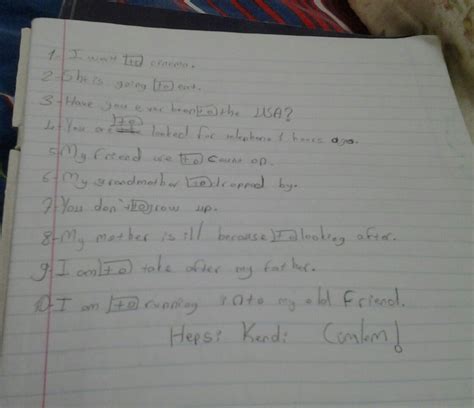 1- I want to cinema.
2- She is going to eat.
3- Have you ever been to the USA?
4- You are to looked for telephone 1 hours ago.
5- My friend are to count on.
6- My grandmother to dropped by.
7- You don't to grow up.
8- My mother is ill because to looking after.
9- I am to take after my father.
10- I am to running into my old friend.
Hepsi Kendi Cümlem!